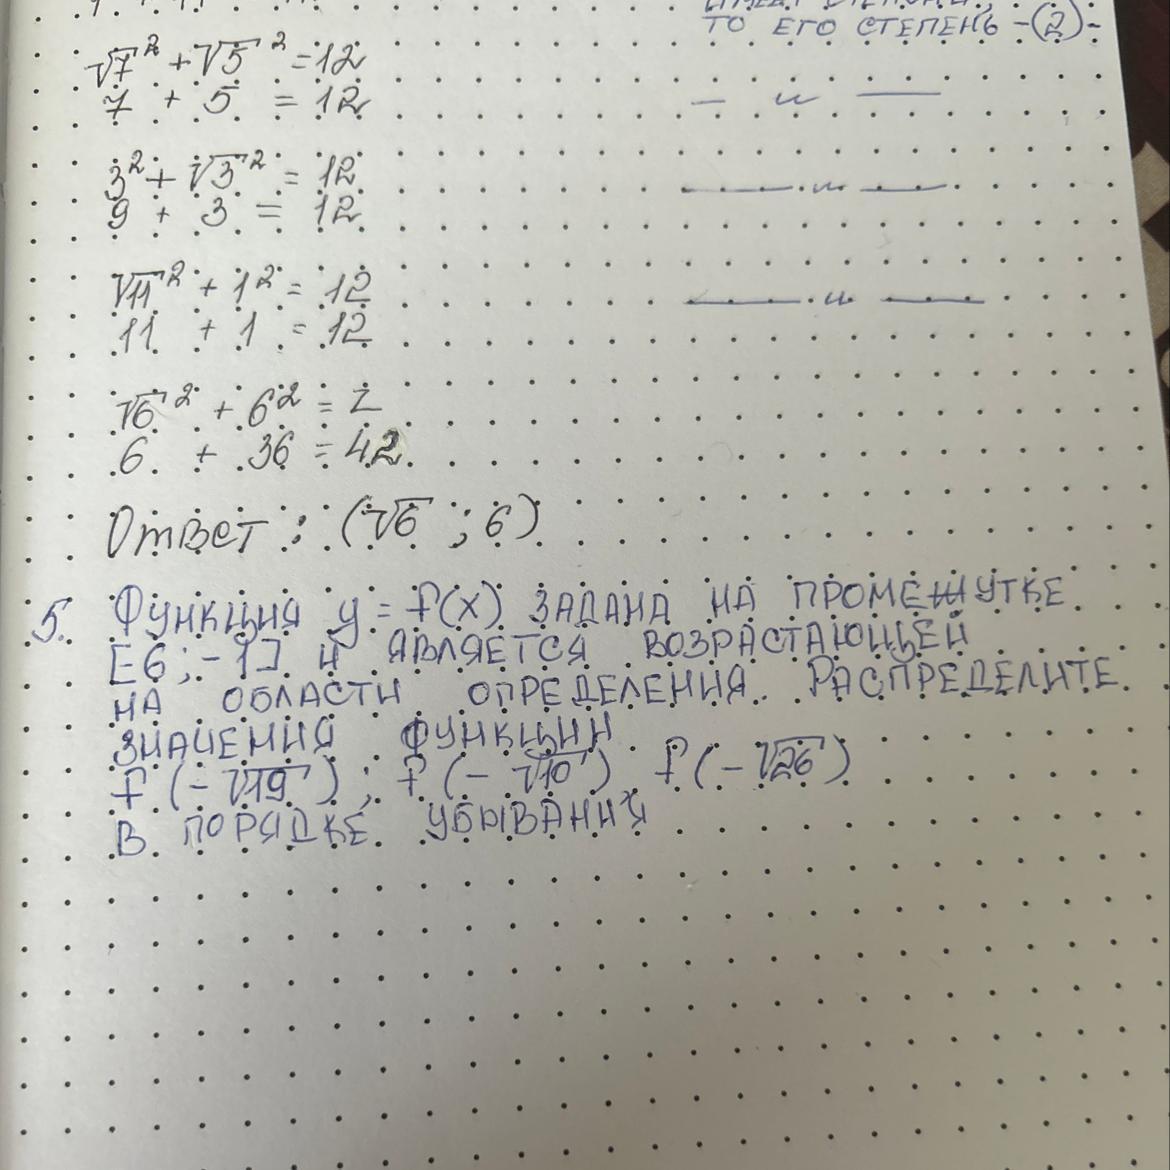 ТО ЕГО СТЕПЕНЬ -(2)-
√7² + √5² = 12
7 + 5 = 12
— " —
3² + √3² = 12
— " —
9 + 3 = 12
√11² + 1² = 12
— " —
11 + 1 = 12
√6² + 6² = 2
6 + 36 = 42
Ответ : (√6 ; 6)
5. Функция y = f(x) ЗАДАНА НА ПРОМЕЖУТКЕ
[6; -1] И ЯВЛЯЕТСЯ ВОЗРАСТАЮЩЕЙ
НА ОБЛАСТИ ОПРЕДЕЛЕНИЯ. РАСПРЕДЕЛИТЕ
ЗНАЧЕНИЯ ФУНКЦИИ
f (-√19) ; f (-√10) f (-√26)
В ПОРЯДКЕ УБЫВАНИЯ